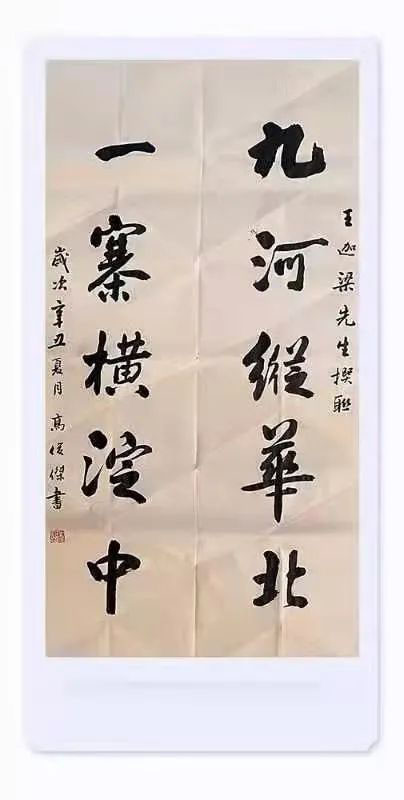 王迦梁先生撰聯
九河縱華北
一寨橫淀中
歲次辛丑夏月高俊傑書